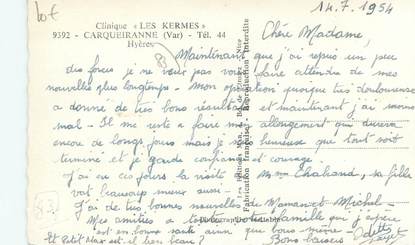 bot
14.7.1954
Clinique « LES KERMES »
9392 - CARQUEIRANNE (Var) - Tél. 44
Hyères
Chère Madame,
Maintenant que j'ai repris un peu
des forces je ne veux pas vous faire attendre de mes
nouvelles plus longtemps - Mon opération quoique très douloureuse
a donné de très bons résultats et maintenant j'ai moins
mal - Il me reste à faire mon allongement qui durera
encore de longs jours mais je suis heureuse que tout soit
terminé et je garde confiance et courage.
J'ai eu ces jours la visite de Mme Chabaud, sa fille
va beaucoup mieux aussi -
J'ai de très bonnes nouvelles de Maman et Michel -
Mes amitiés à toute votre famille qui j'espère
est en bonne santé ainsi que vous même -
Et Petit Max est-il bien beau ? Bons baisers Odette
Fabrication française - Reproduction interdite
83